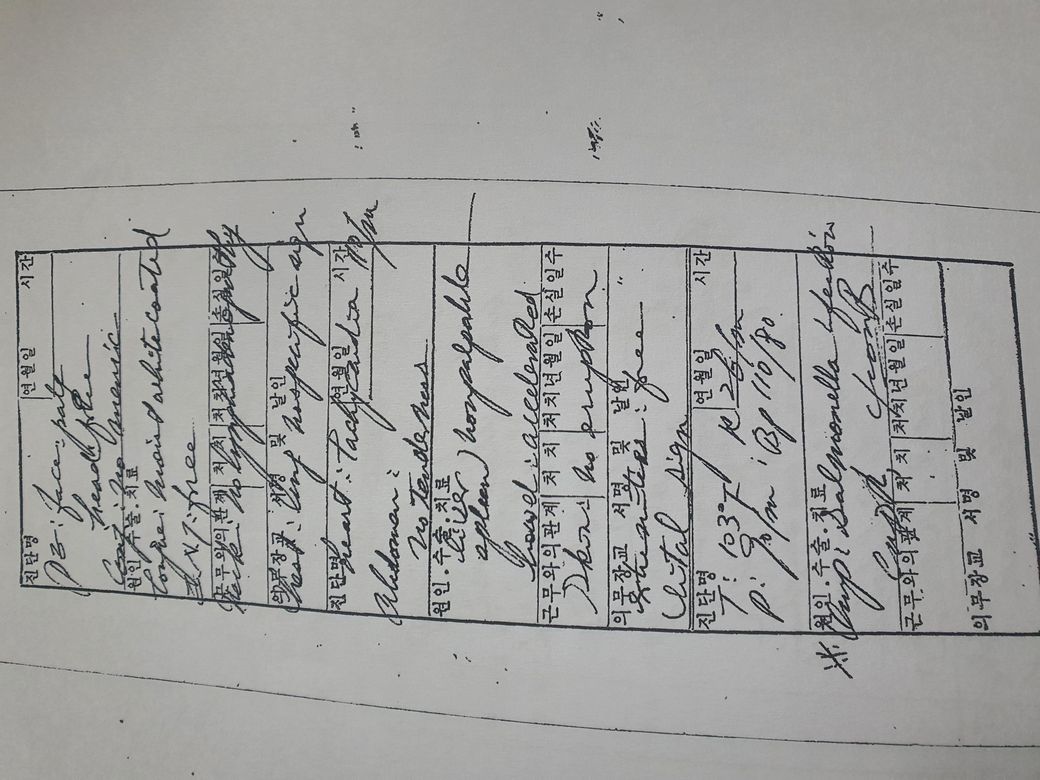 진단명 연월일 시간
P.E: face: pale
head: free
원인·수술·치료
tongue: moist & white coated
E.N.: free
근무와의 관계 처치 처치년월일 손실일수
Neck: no
의무장교 서명 및 날인
Chest: lung no specific sign
진단명 연월일 시간
heart: Tachycardia
Abdomen:
no tenderness
원인·수술·치료
liver
spleen) nonpalpable
bowel: accelerated
근무와의 관계 처치 처치년월일 손실일수
Skin: no eruption
의무장교 서명 및 날인
Extremities: free
Vital sign
진단명 연월일 시간
T: 103°F R 26/m
P: 90/m : BP 110/80.
원인·수술·치료
※ Imp: Salmonella Infection
근무와의 관계 처치 처치년월일 손실일수
의무장교 서명 및 날인